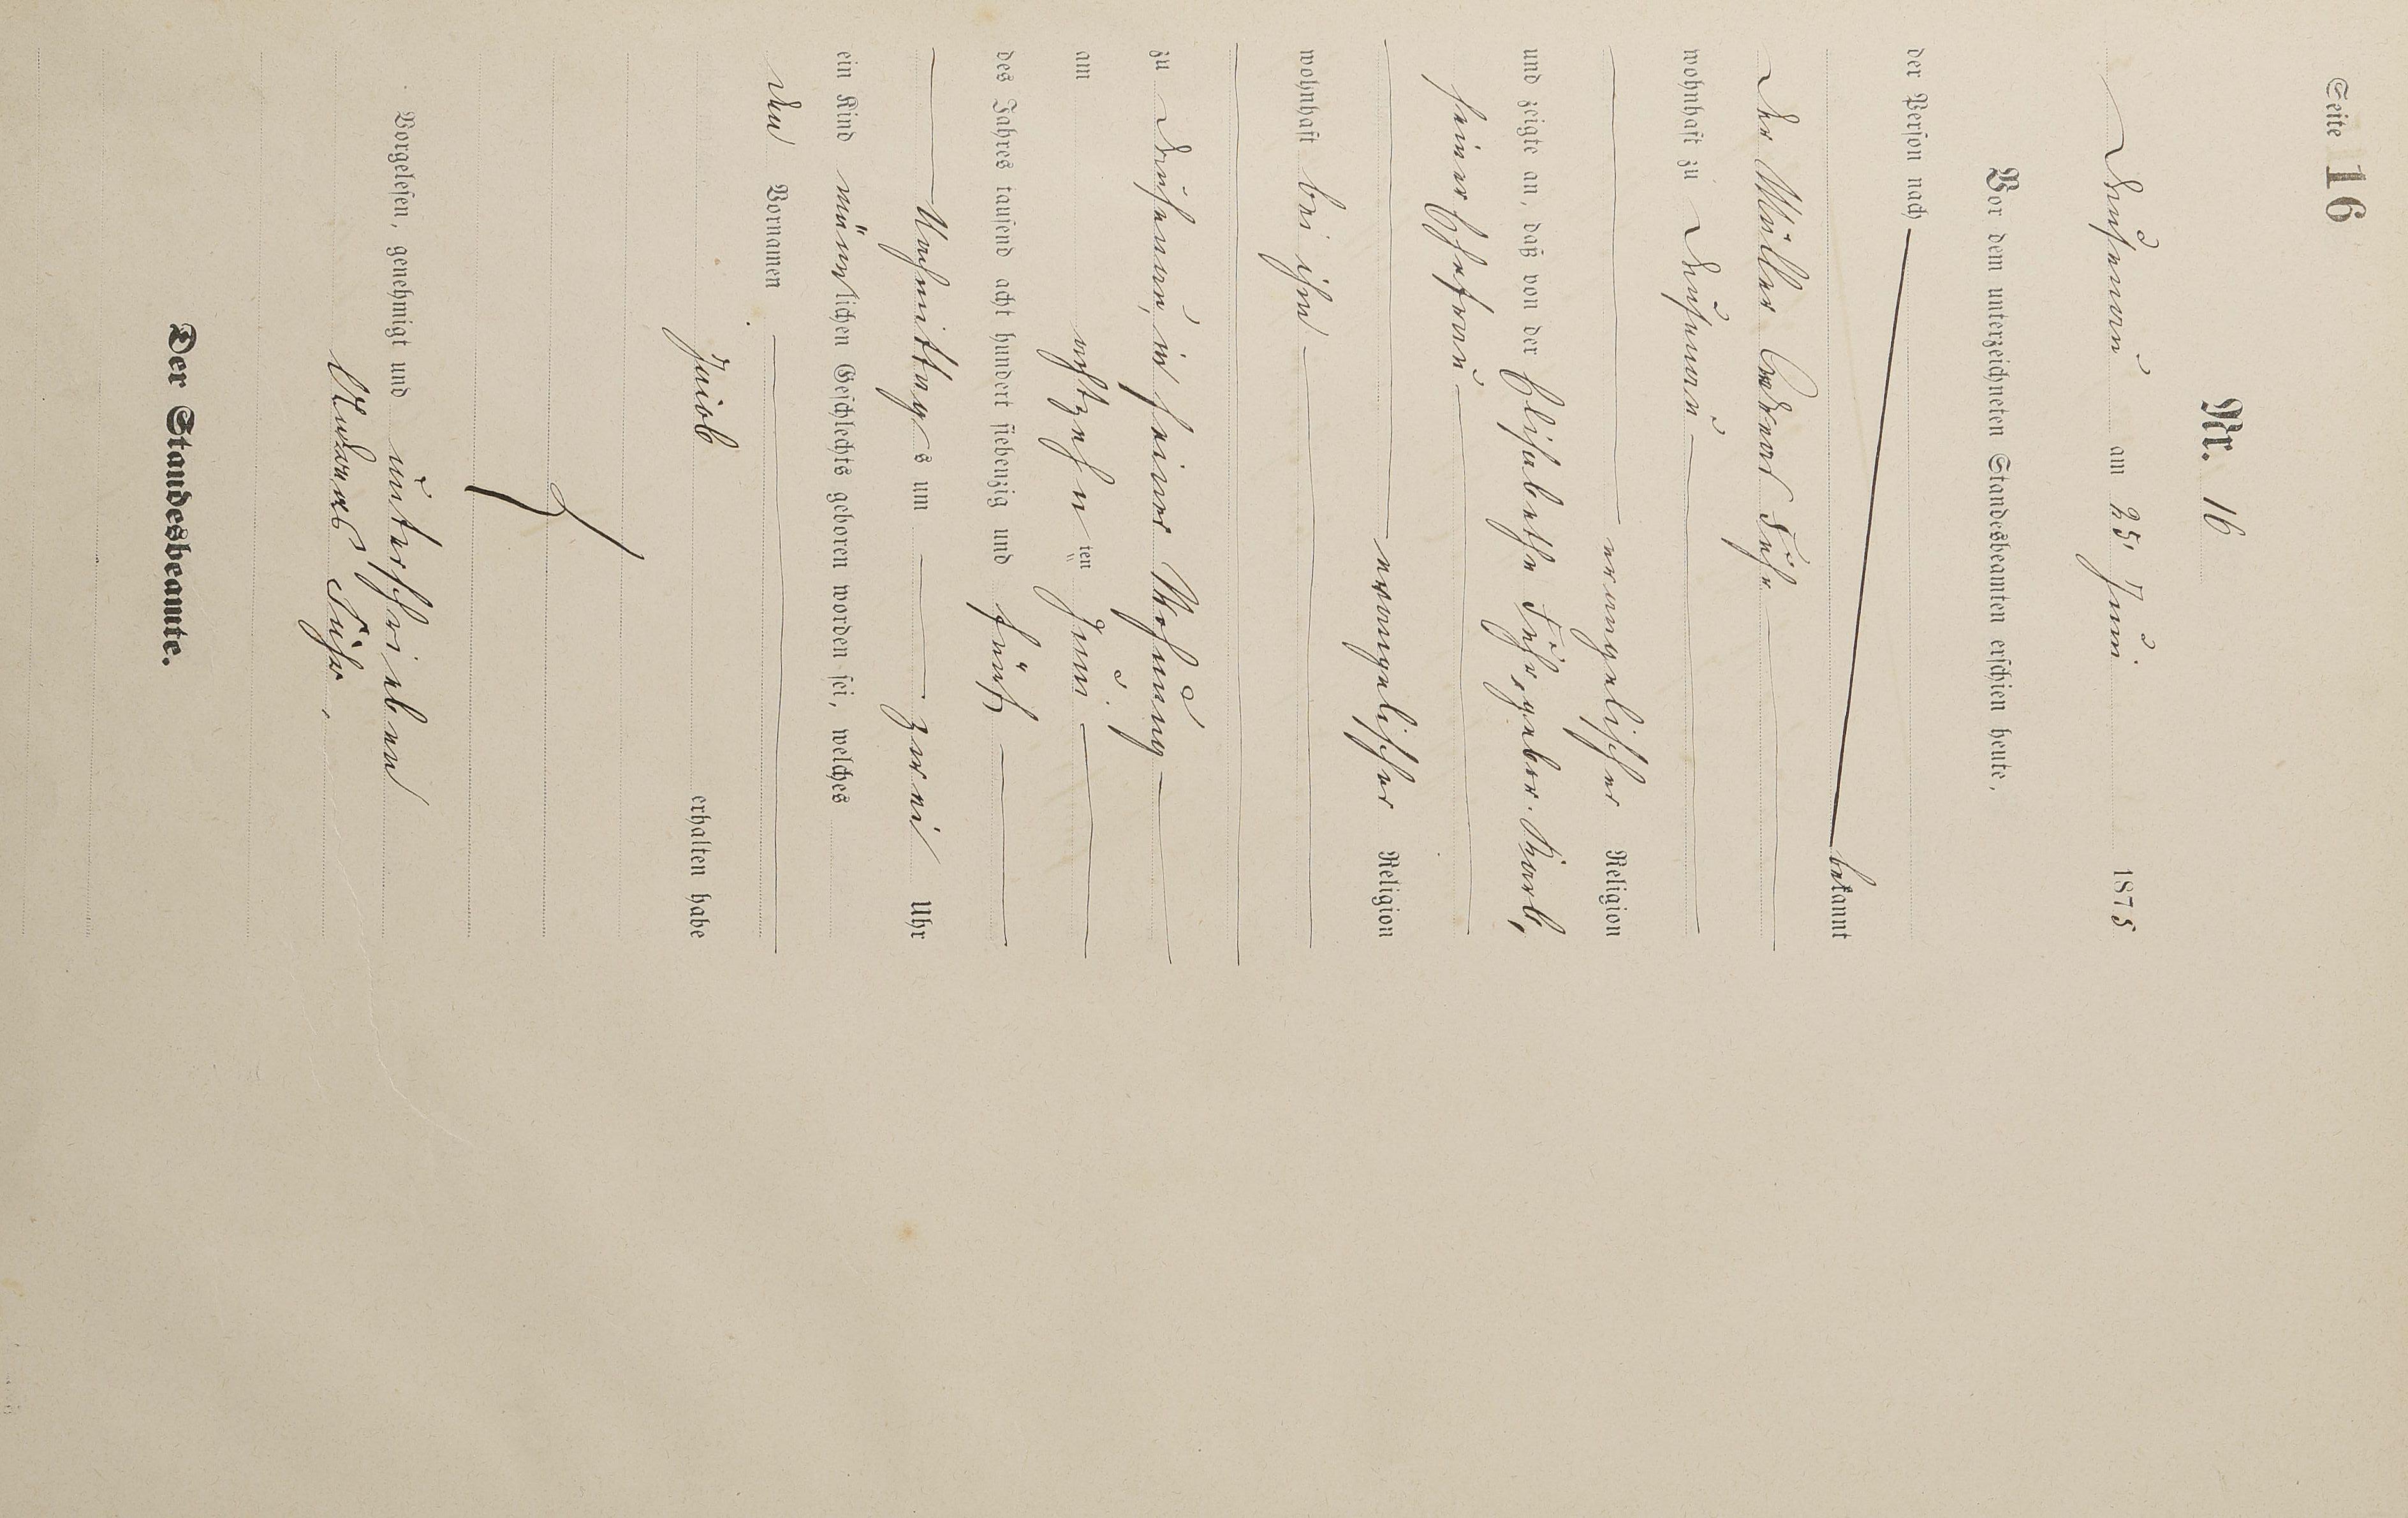 Seite 16
Nr. 16
am 25 Juni 1875
Vor dem unterzeichneten Standesbeamten erschien heute,
der Person nach
bekannt
der Müller
wohnhaft zu
evangelischer Religion
und zeigte an, daß von der Elisabetha gebor.
seiner Ehefrau
evangelischer Religion
wohnhaft bei ihm
zu in seiner Wohnung
am achtzehn ten Juni
des Jahres tausend acht hundert siebenzig und fünf
Nachmittag s um zwei Uhr
ein Kind männlichen Geschlechts geboren worden sei, welches
den Vornamen
Jakob
erhalten habe
Vorgelesen, genehmigt und unterschrieben
Der Standesbeamte.